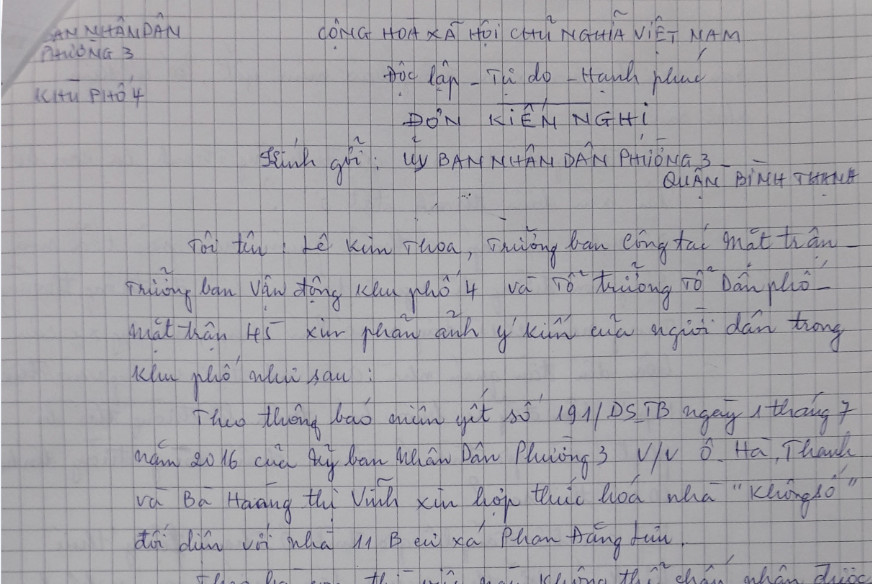 AN NHÂN DÂN
PHƯỜNG 3
KHU PHỐ 4
CỘNG HOÀ XÃ HỘI CHỦ NGHĨA VIỆT NAM
Độc lập - Tự do - Hạnh phúc
ĐƠN KIẾN NGHỊ
Kính gửi : Uỷ BAN NHÂN DÂN PHƯỜNG 3
QUẬN BÌNH THẠNH
Tôi tên : Lê Kim Thoa, Trưởng ban Công tác mặt trận -
Trưởng ban Vận động khu phố 4 và Tổ trưởng Tổ Dân phố -
mặt trận 45 xin phản ảnh ý kiến của người dân trong
khu phố như sau :
Theo thông báo niêm yết số 191/DS_TB ngày 1 tháng 7
năm 2016 của Uỷ ban Nhân Dân Phường 3 V/v Ô. Hà, Thanh
và Bà Hoàng thị Vĩnh xin hợp thức hoá nhà "Không số"
đối diện với nhà 11 B cư xá Phan Đăng Lưu.
không thể chấp nhận được